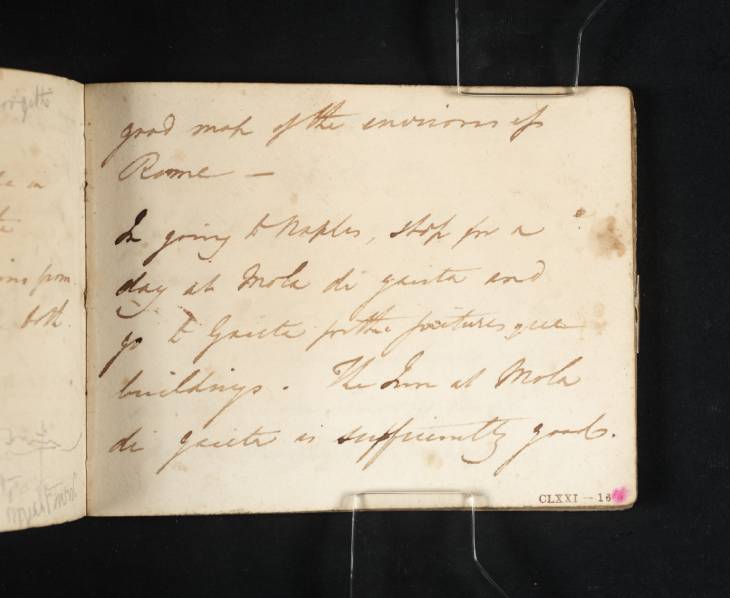 good map of the environs of
Rome —
In going to Naples, stop for a
day at Mola di gaieta and
go to Gaieta for the picturesque
buildings. The Inn at Mola
di gaieta is sufficiently good.
from
both
CLXXI - 16